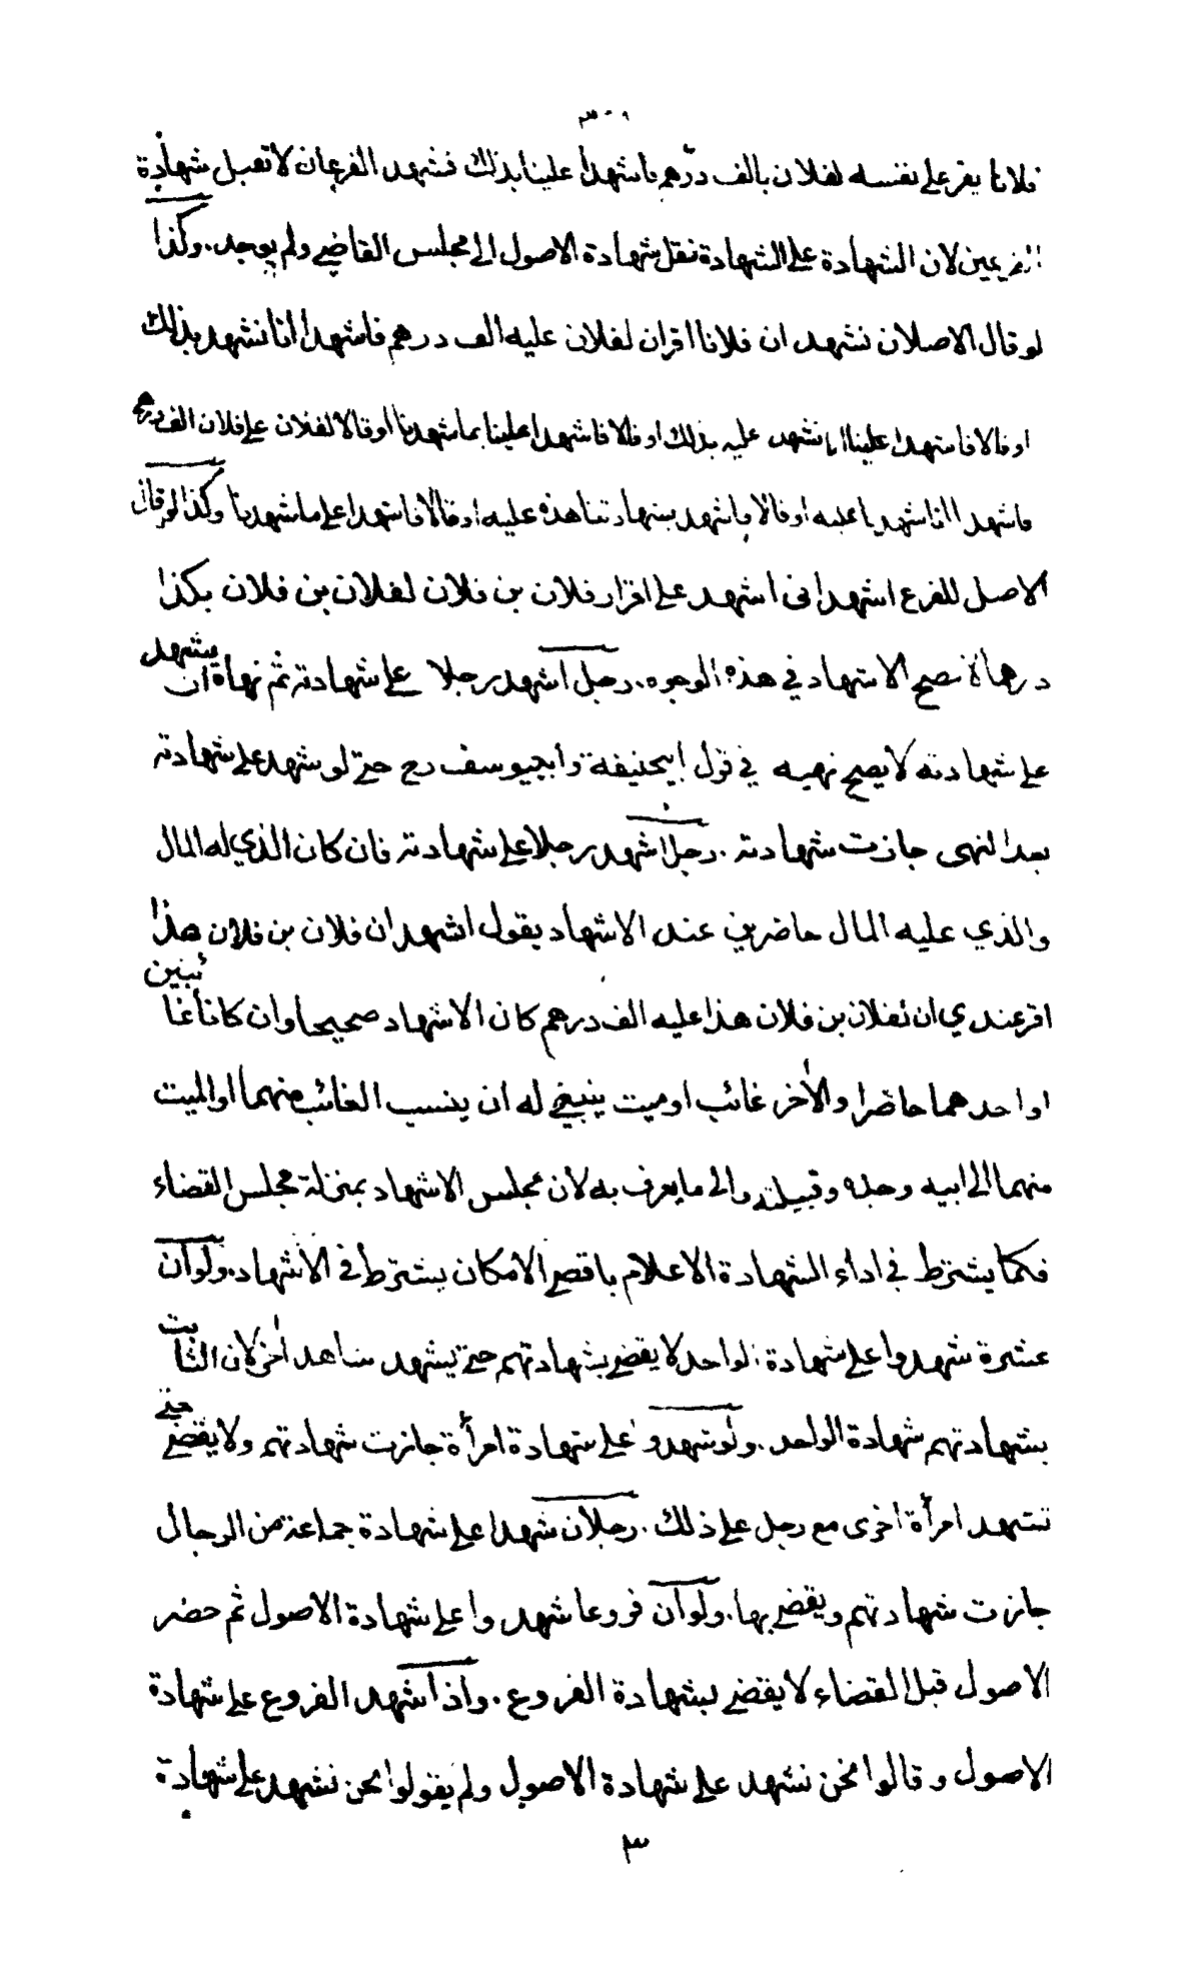 ٣٠٩
فلانا يقر على نفسه لفلان بالف درهم فاشهدا علينا بذلك فشهد الفرعان لا تقبل شهادة
الفرعين لان الشهادة على الشهادة نقل شهادة الاصول الى مجلس القاضي ولم يوجد. وكذا
لو قال الاصلان نشهد ان فلانا اقران لفلان عليه الف درهم فاشهدا انا نشهد بذلك
او قالا فاشهدا علينا انا نشهد عليه بذلك او قالا فاشهدا علينا بما شهدنا او قالا لفلان على فلان الف درهم
فاشهدا انا شهدنا عليه او قالا فاشهد بشهادتنا هذه عليه او قالا فاشهدا على ما شهدنا وكذا لو قال
الاصل للفرع اشهد انى اشهد على اقرار فلان بن فلان لفلان بن فلان بكذا
درهما لا يصح الاشهاد في هذه الوجوه. رجل اشهد رجلا على شهادته ثم نهاه ان يشهد
على شهادته لا يصح نهيه في قول ابيحنيفة وابييوسف رح حتى لو شهد على شهادته
بعد النهى جازت شهادته. رجل اشهد رجلا على شهادته فان كان الذي له المال
والذي عليه المال حاضرين عند الاشهاد يقول اشهد ان فلان بن فلان هذا
اقر عندي ان لفلان بن فلان هذا عليه الف درهم كان الاشهاد صحيحا وان كانا غائبين
او احدهما حاضرا والآخر غائب او ميت ينبغي له ان ينسب الغائب منهما او الميت
منهما الى ابيه وجده وقبيلته والى ما يعرف به لان مجلس الاشهاد بمنزلة مجلس القضاء
فكما يشترط في اداء الشهادة الاعلام باقصى الامكان يشترط في الاشهاد. ولو ان
عشرة شهدوا على شهادة الواحد لا يقضى بشهادتهم حتى يشهد شاهد آخر لان الثابت
بشهادتهم شهادة الواحد. ولو شهدوا على شهادة امرأة جازت شهادتهم ولا يقضى حتى
تشهد امرأة اخرى مع رجل على ذلك. رجلان شهدا على شهادة جماعة من الرجال
جازت شهادتهم ويقضى بها. ولو ان فروعا شهدوا على شهادة الاصول ثم حضر
الاصول قبل القضاء لا يقضى بشهادة الفروع. واذا شهد الفروع على شهادة
الاصول وقالوا نحن نشهد على شهادة الاصول ولم يقولوا نحن نشهد على شهادة
٣